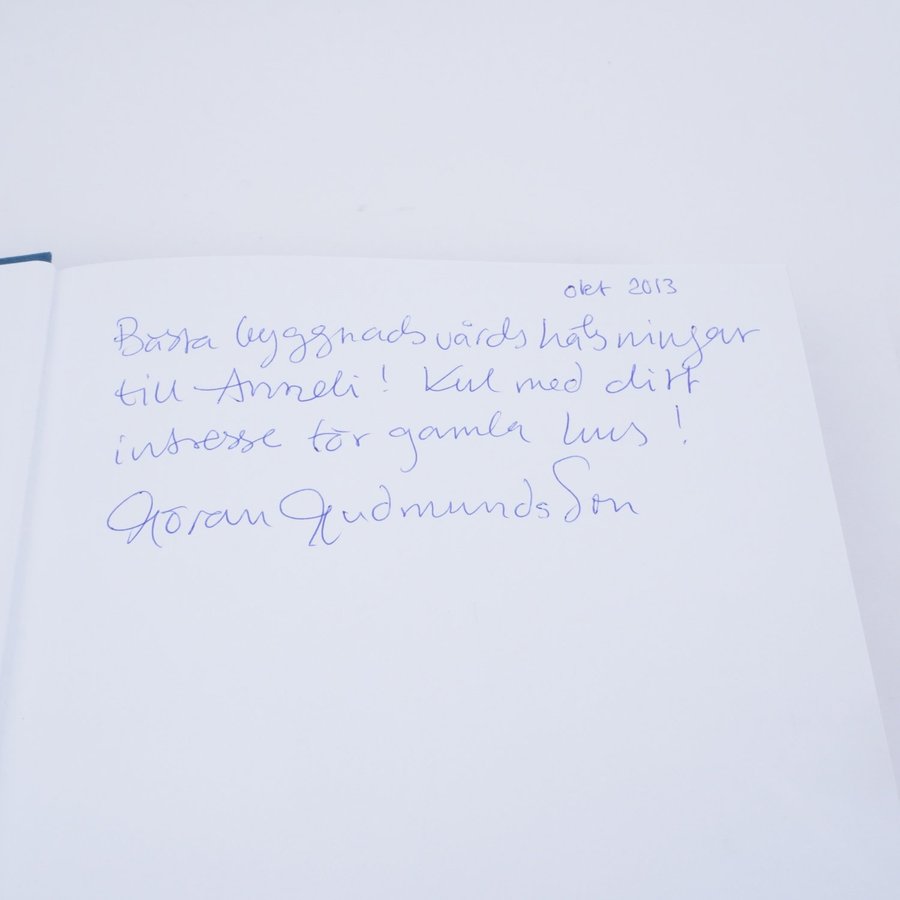 okt 2013
Bästa byggnadsvårdshälsningar
till Anneli! Kul med ditt
intresse för gamla hus!
Göran Gudmundsson